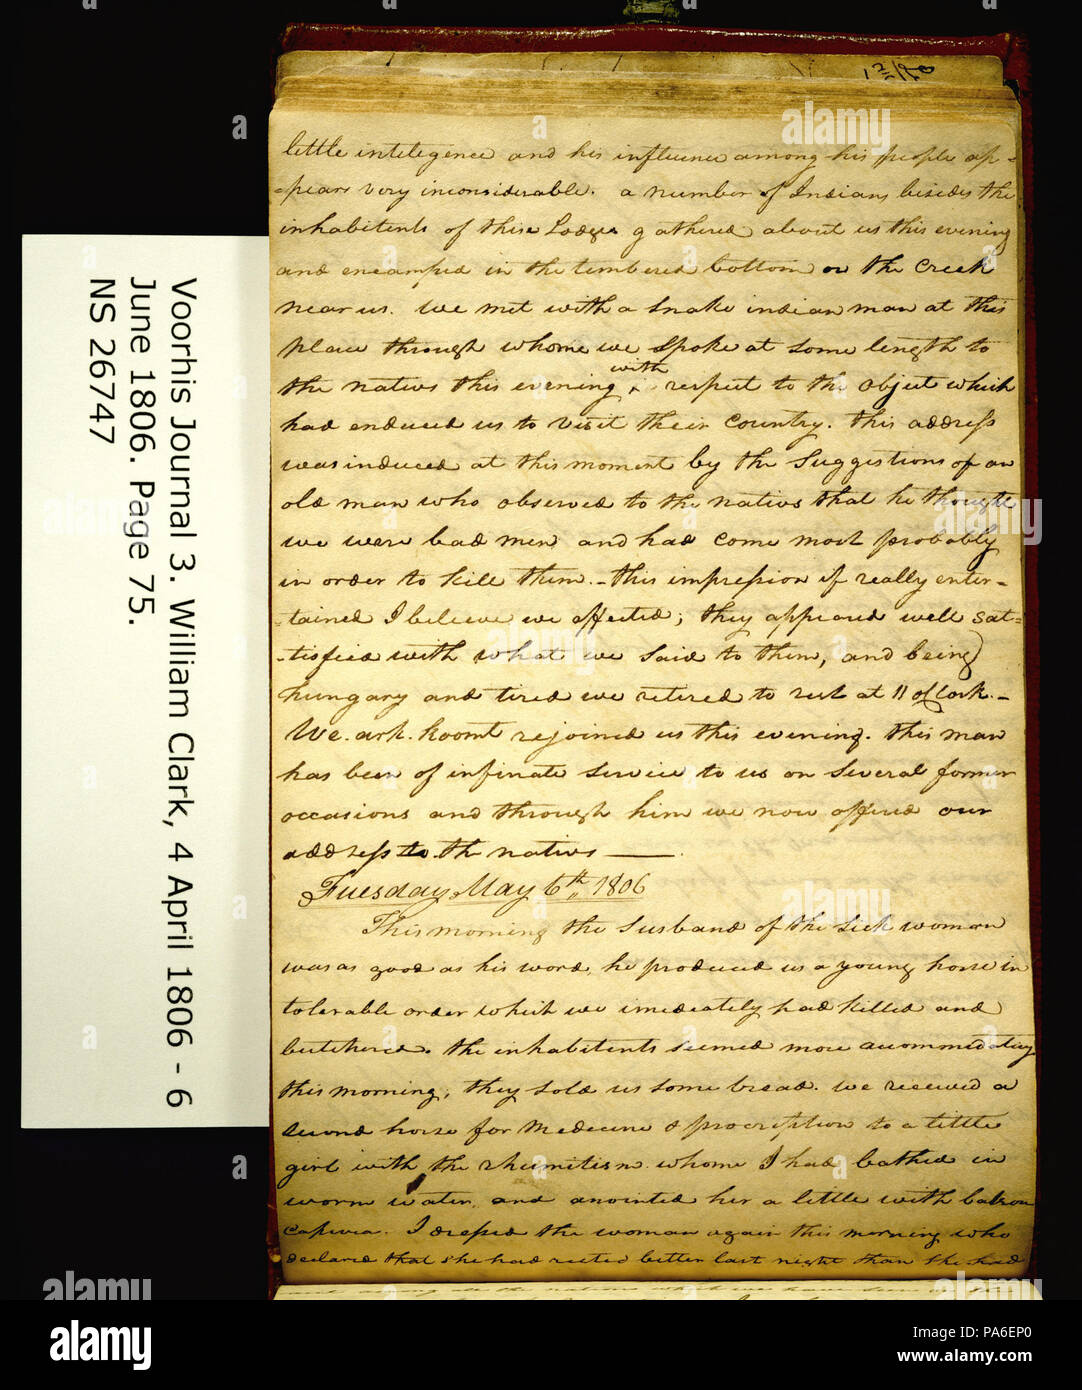 little inteligence and his influence among his people ap-
-pears very inconsiderable. a number of Indians besides the
inhabitents of these Lodges gathered about us this evening
and encamped in the timbered bottom on the Creek
near us. we met with a Snake indian man at this
place through whome we spoke at some length to
the natives this evening with respect to the object which
had enduced us to visit their Country. this address
was induced at this moment by the Suggestions of an
old man who observed to the natives that he thought
we were bad men and had come most probably
in order to kill them. - this impression if really enter-
-tained I believe we effected; they appeared well sat-
-tisfied with what we said to them, and being
hungary and tired we retired to rest at 11 oClock. -
We. ark. koomt rejoined us this evening. this man
has been of infinate Service to us on Several former
occasions and through him we now offered our
address to the natives ———.
Tuesday May 6th 1806
This morning the Susband of the Sick woman
was as good as his word, he produced us a young horse in
tolerable order which we imediately had killed and
butchered. the inhabitents seemed more accommodating
this morning, they sold us some bread. we received a
second horse for Medecine & procription to a little
girl with the rhumitism whome I had bathed in
worm water, and anointed her a little with balsom
capivia. I dressed the woman again this morning who
declared that she had rested better last night than She had
Voorhis Journal 3. William Clark, 4 April 1806 - 6
June 1806. Page 75.
NS 26747
alamy
Image ID: PA6EP0
www.alamy.com